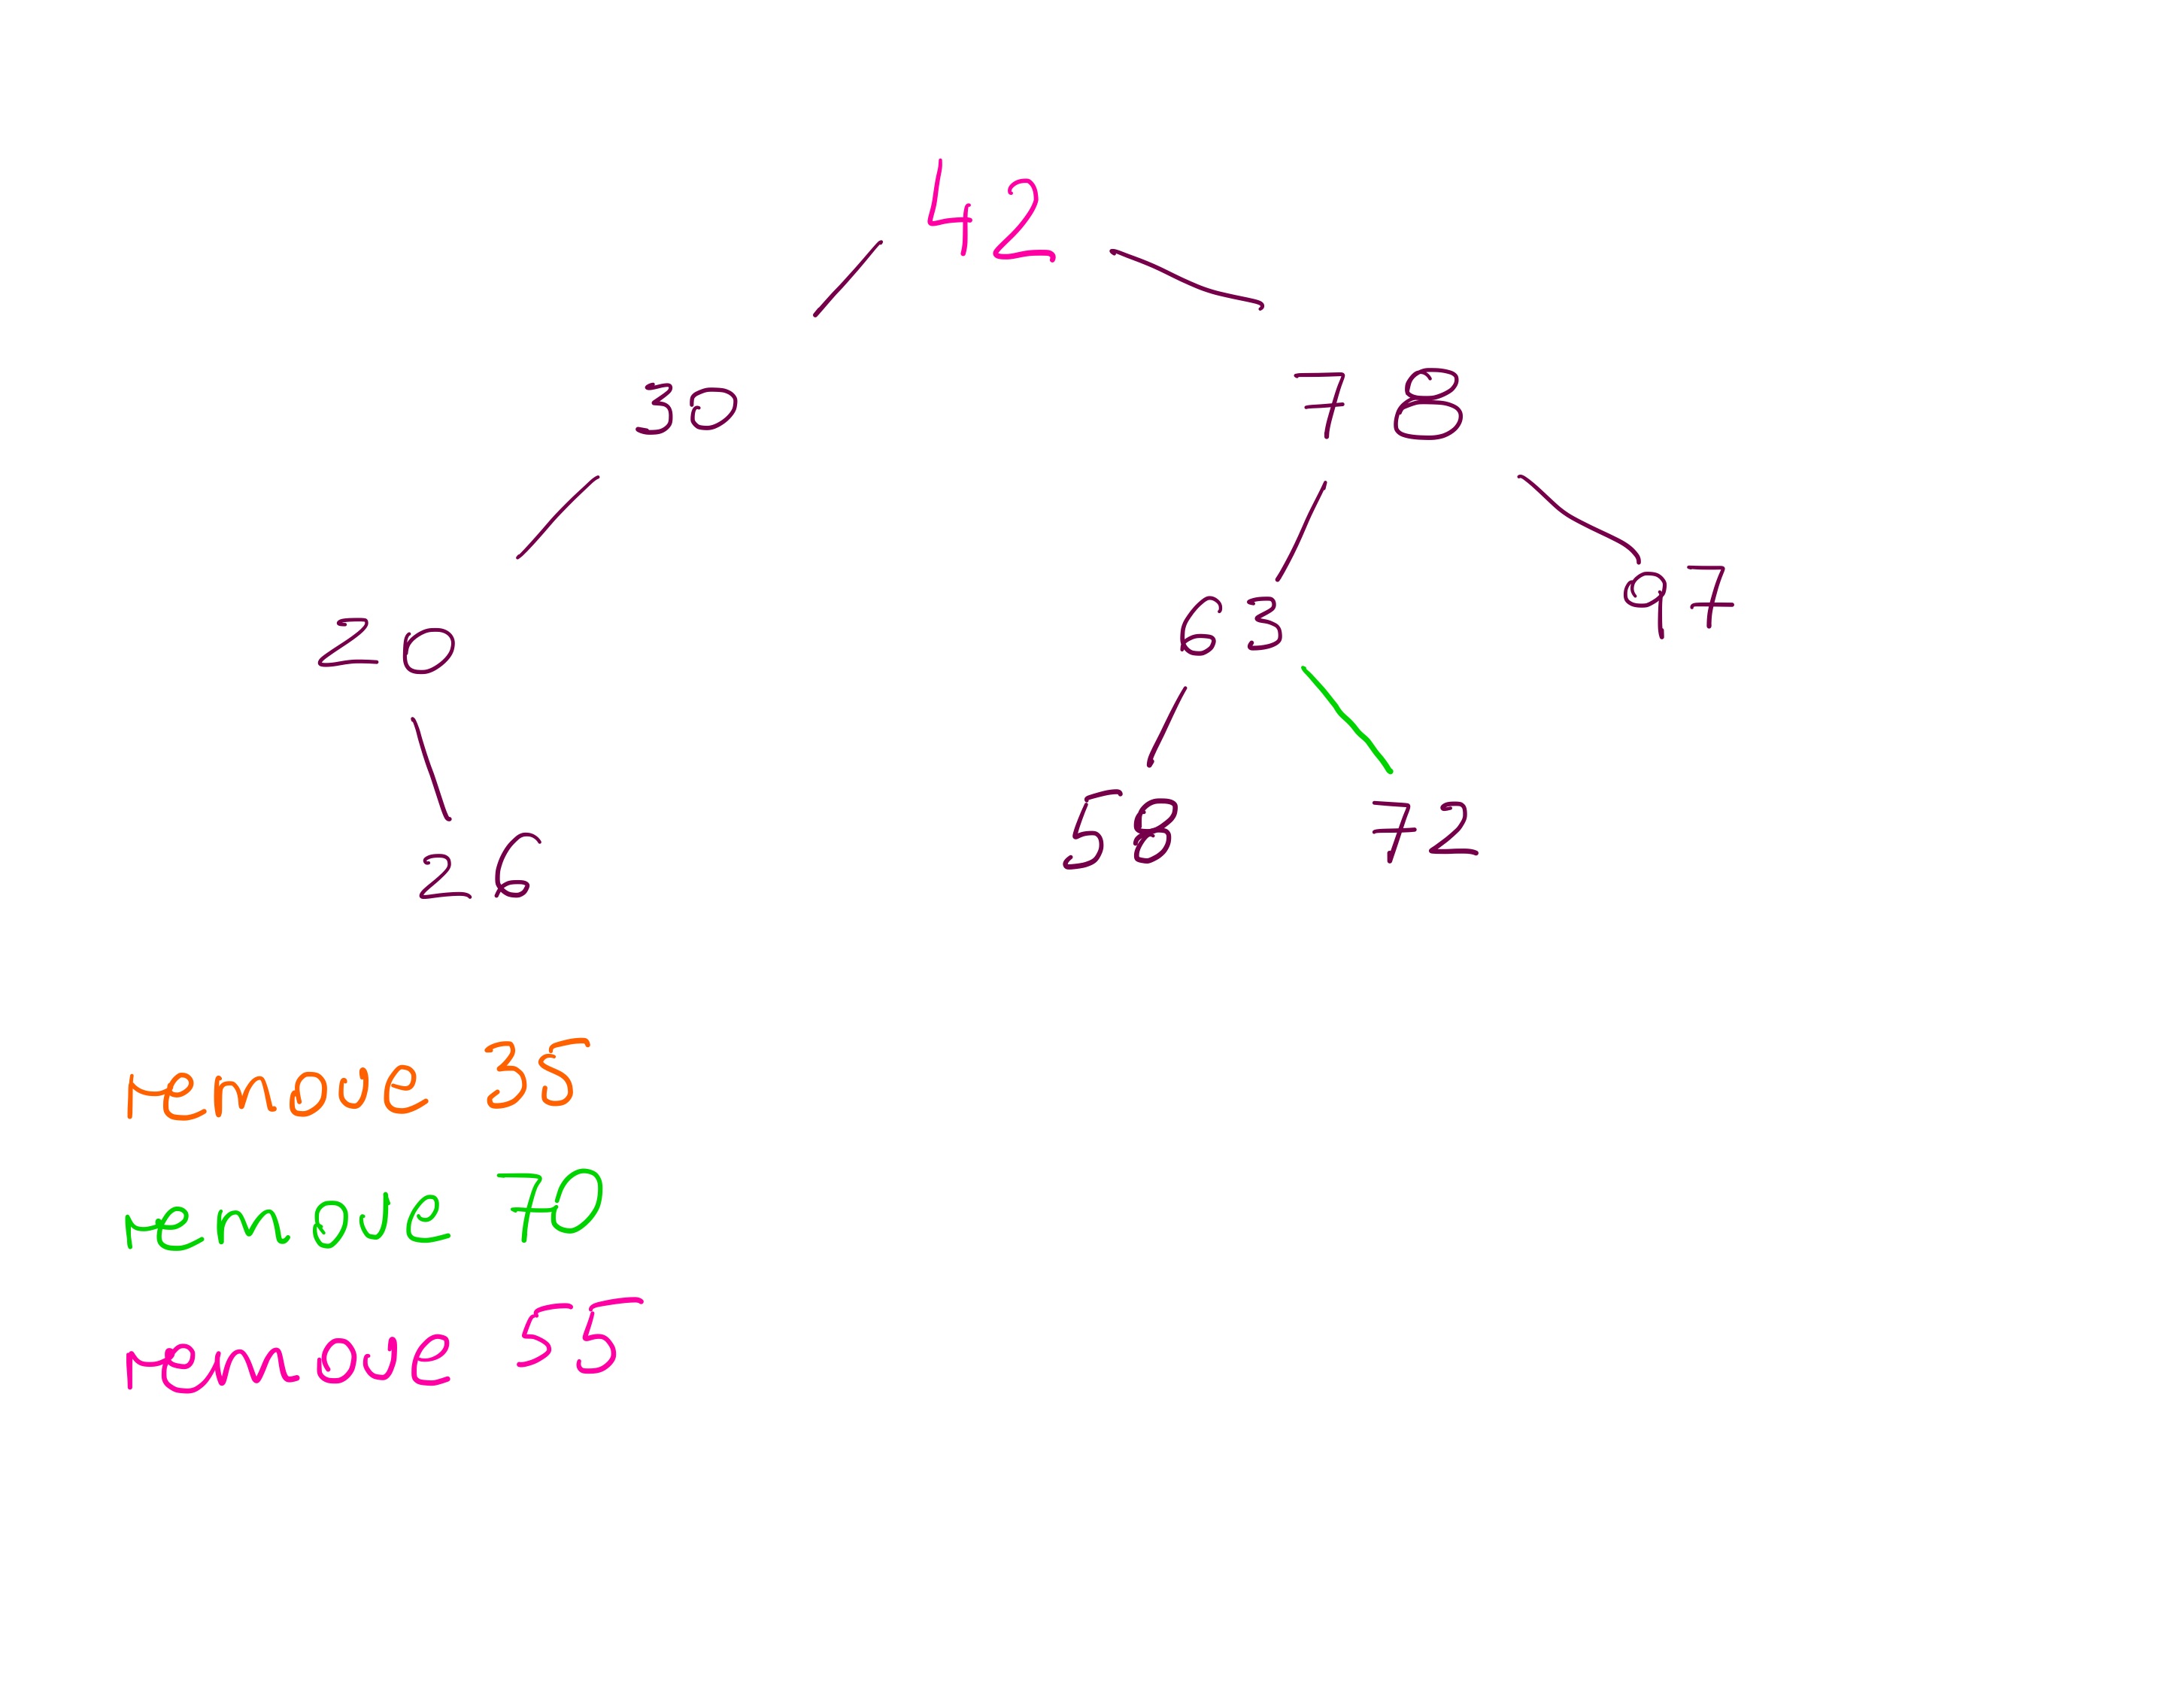 42
30 78
20 63 97
26 58 72
remove 35
remove 70
remove 55